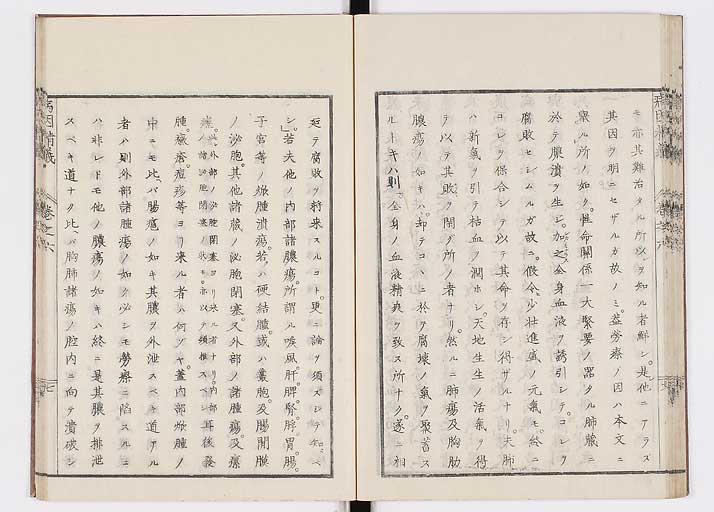 モ亦其難治タル所以ヲ知ル者鮮シ。是他ニアラズ
其因ヲ明ニセザルガ故ノミ。蓋労瘵ノ因ハ本文ニ
擧ル所ノ如ク。性命關係一大緊要ノ器タル肺臓ニ
於テ膿潰ヲ生シ。加之全身血液ヲ誘引シテ。コレヲ
腐敗セシムルガ故ニ。假令少壮進盛ノ元氣モ。終ニ
コレヲ保合シテ以テ其命ヲ存シ得ザルナリ。夫肺
ハ新氣ヲ引テ枯血ヲ潤ホシ。天地生生ノ活氣ヲ得
テ以テ其敗ヲ閉グ所ノ者ナリ。然ルニ肺瘍及胸肋
膿瘍ノ如キハ。却テコハニ於ヲ腐壊ノ氣ヲ聚蓄ス
ルトキハ則。全身ノ血液精爽ヲ致ス所ナク。遂ニ相
延テ腐敗ヲ将来スルコト。更ニ論ヲ須スシテ知ベ
シ」若夫他ノ内部諸膿瘍。所謂ル喉風。肝。脾。腎。胃。腸。
子宮等ノ焮腫潰瘍。若ハ硬結腫。或ハ嚢胞。及腸間膜
ノ泌胞。其他諸臓ノ泌胞閉塞。又外部ノ諸腫瘍。及瘰
癧。外部ノ泌胞閉塞ヨリ来ル者ナリ。内部ノ諸泌胞閉塞ノ状モ。亦以テ類推スベシ。耳後發
腫。黴瘡。痘疹等ヨリ来ル者ハ何ゾヤ。蓋内部焮腫ノ
中ニモ比バ腸癰ノ如キ其膿ヲ外泄スベキ道アル
者ハ則外部諸腫瘍ノ如ク必シモ労瘵ニ陥スルニ
ハ非レドモ他ノ膿瘍ノ如キハ終ニ是其膿ヲ排泄
スベキ道ナク比バ胸肺諸瘍ノ腔内ニ向テ潰破シ
病因精義
巻之六
七